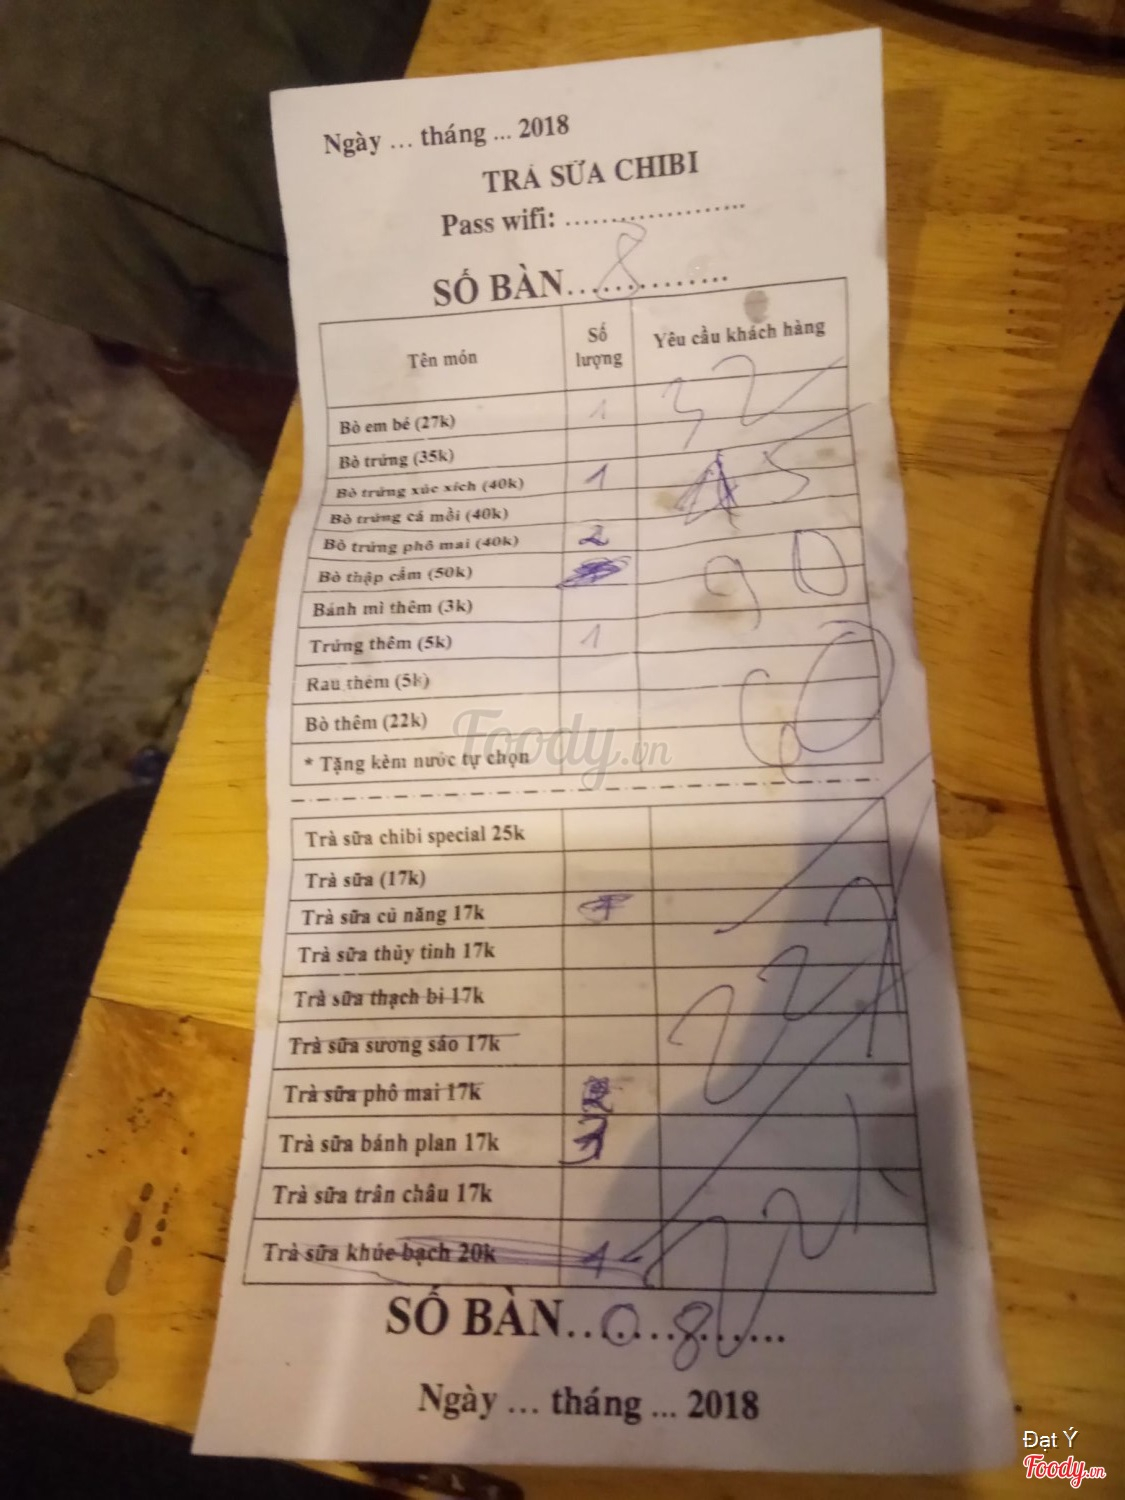 Ngày ... tháng ... 2018
TRÀ SỮA CHIBI
Pass wifi: ......................
SỐ BÀN...8...........
Tên món Số lượng Yêu cầu khách hàng
Bò em bé (27k) 1 32
Bò trứng (35k)
Bò trứng xúc xích (40k) 1 45
Bò trứng cá mồi (40k)
Bò trứng phô mai (40k) 2
Bò thập cẩm (50k) 90
Bánh mì thêm (3k)
Trứng thêm (5k) 1
Rau thêm (5k) 60
Bò thêm (22k)
* Tặng kèm nước tự chọn
Trà sữa chibi special 25k
Trà sữa (17k)
Trà sữa củ năng 17k
Trà sữa thủy tinh 17k
Trà sữa thạch bi 17k
Trà sữa sương sáo 17k
Trà sữa phô mai 17k
Trà sữa bánh plan 17k
Trà sữa trân châu 17k
Trà sữa khúc bạch 20k 1
SỐ BÀN...08...........
Ngày ... tháng ... 2018
Foody.vn
Đạt Ý
Foody.vn